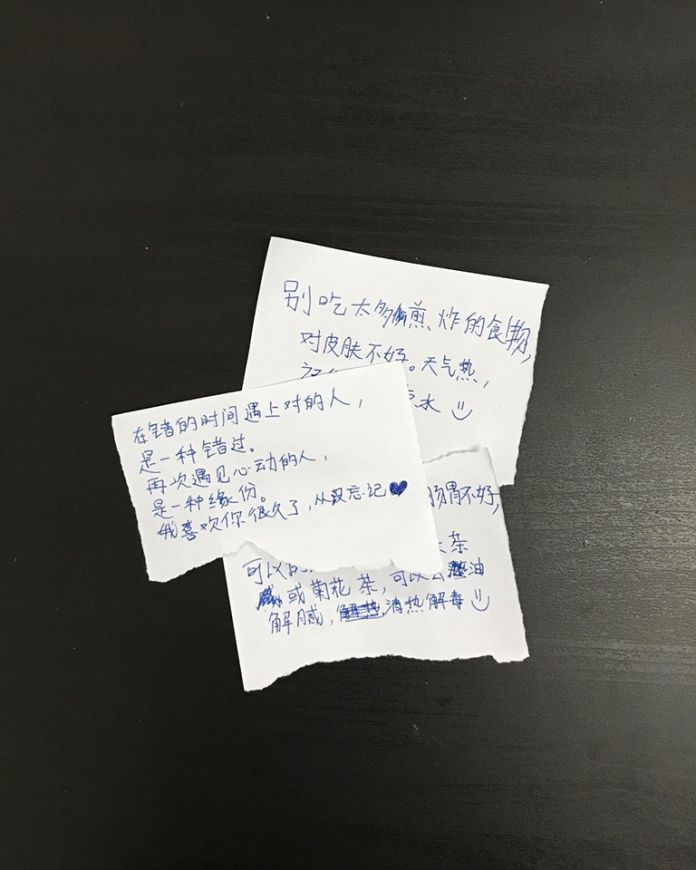 别吃太多煎、炸的食物,
对皮肤不好。天气热,
水
在错的时间遇上对的人,
是一种错过。
再次遇见心动的人,
是一种缘份。
我喜欢你很久了,从没忘记
肠胃不好,
茶
可以
或菊花茶,可以去油
解腻,清热解毒